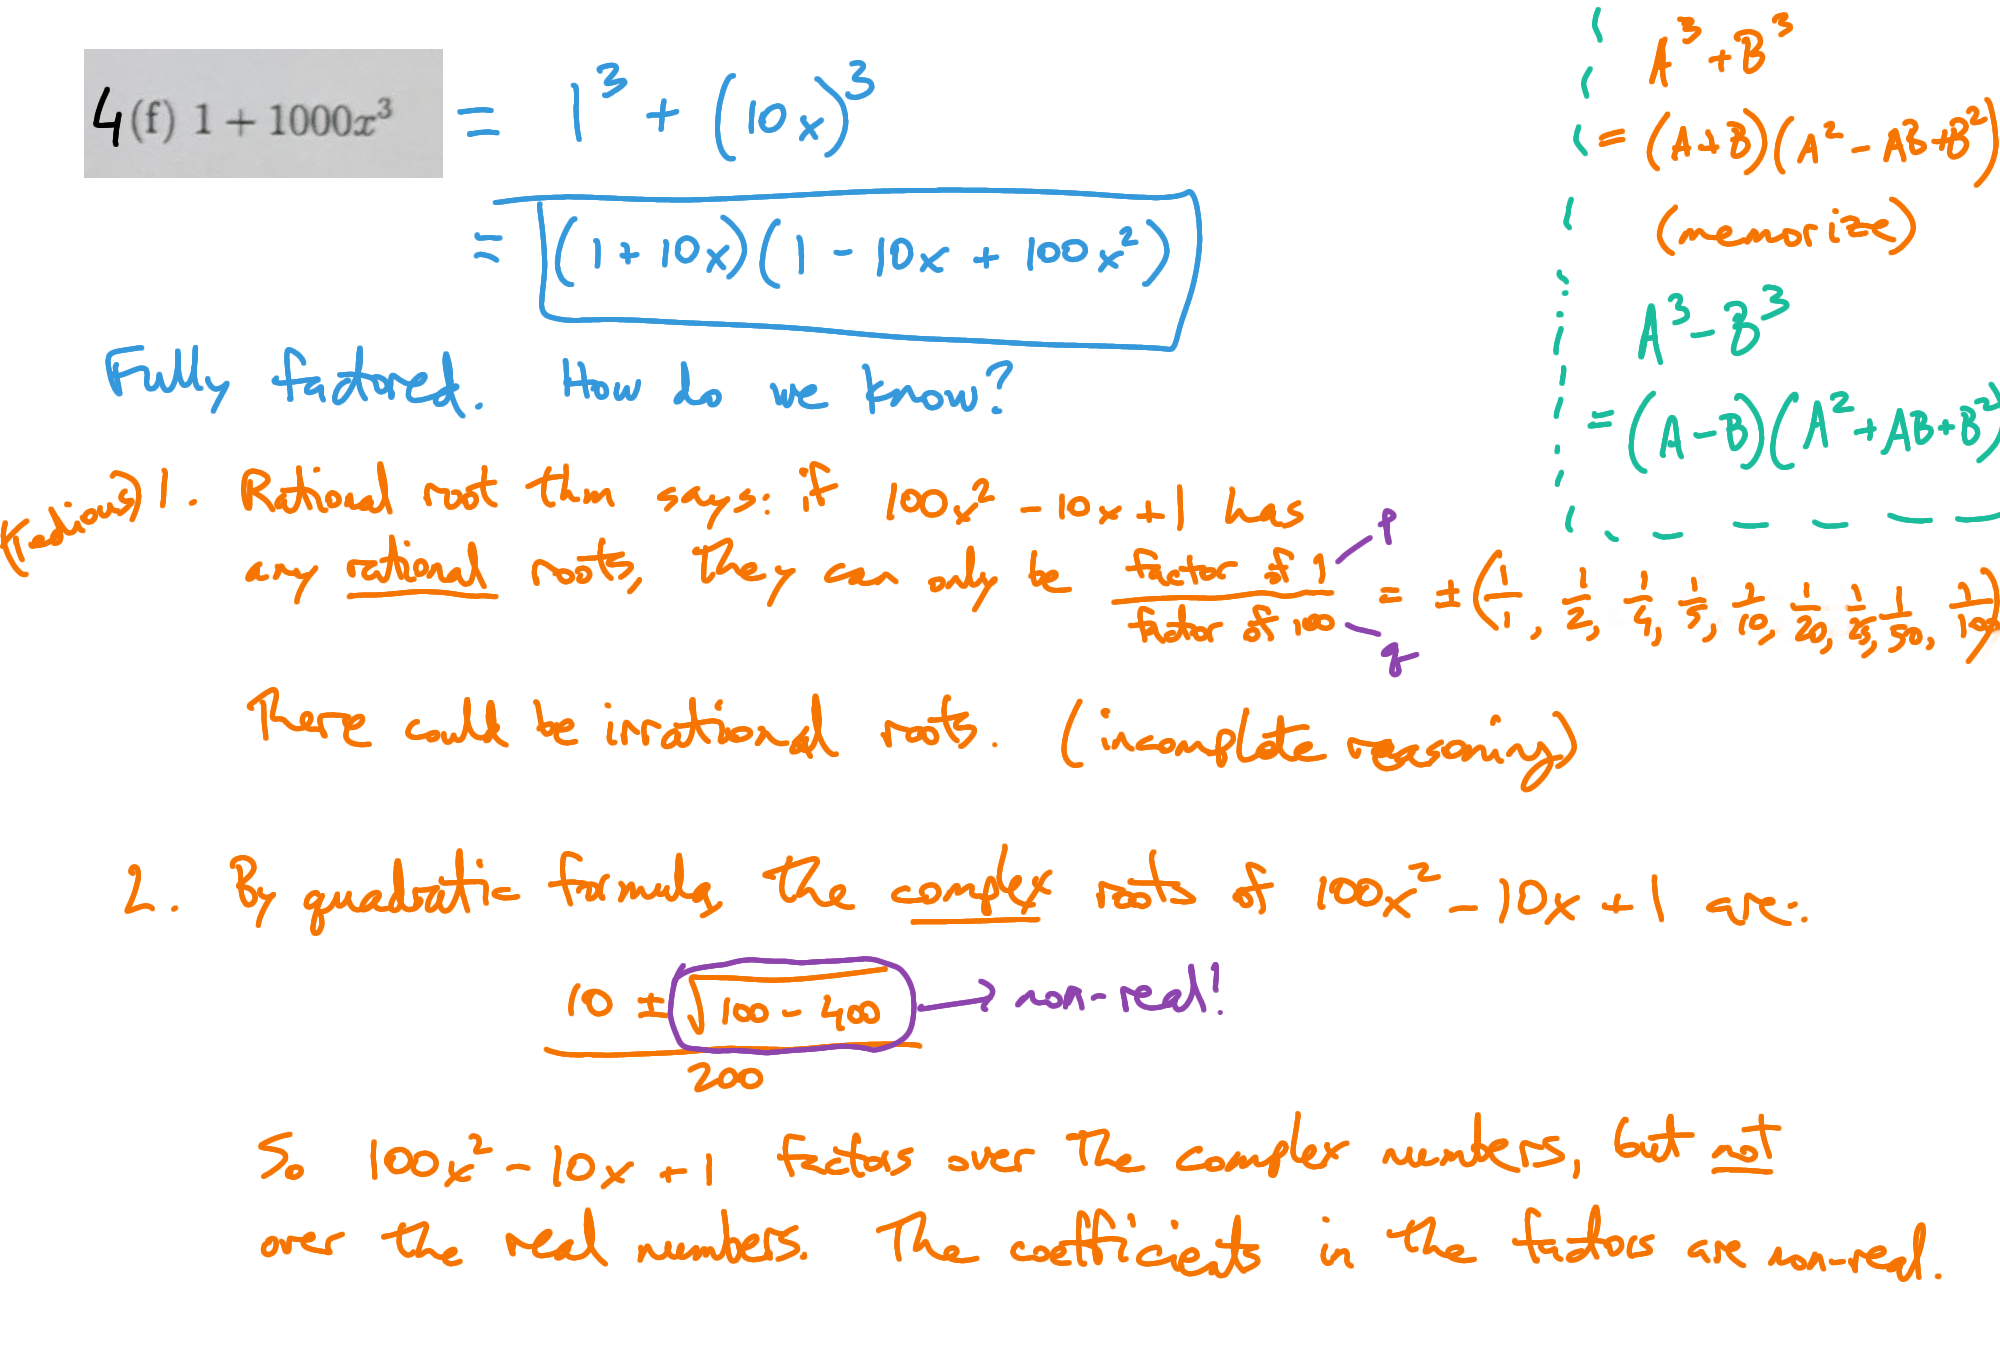 4(f) 1 + 1000x³ = 1³ + (10x)³
= (1 + 10x)(1 - 10x + 100x²)
A³ + B³
= (A+B)(A² - AB + B²)
(memorize)
A³ - B³
= (A-B)(A² + AB + B²)
Fully factored. How do we know?
(tedious) 1. Rational root thm says: if 100x² - 10x + 1 has
any rational roots, they can only be factor of 1 / factor of 100 = ± (1/1, 1/2, 1/4, 1/5, 1/10, 1/20, 1/25, 1/50, 1/100)
p
q
There could be irrational roots. (incomplete reasoning)
2. By quadratic formula, the complex roots of 100x² - 10x + 1 are:
10 ± √100 - 400 → non-real!
200
So 100x² - 10x + 1 factors over the complex numbers, but not
over the real numbers. The coefficients in the factors are non-real.